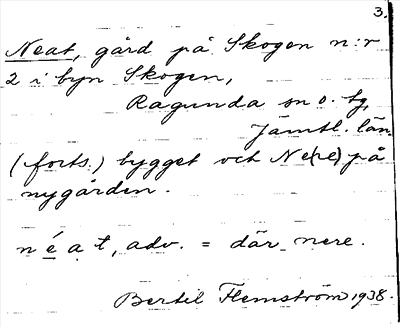 3.
Neat, gård på Skogen n:r
2 i byn Skogen,
Ragunda sn o. tg,
Jämtl. län.
(forts.) bygget och Ne(re) på
nygården.
n é a t, adv. = där nere.
Bertil Flemström 1938.